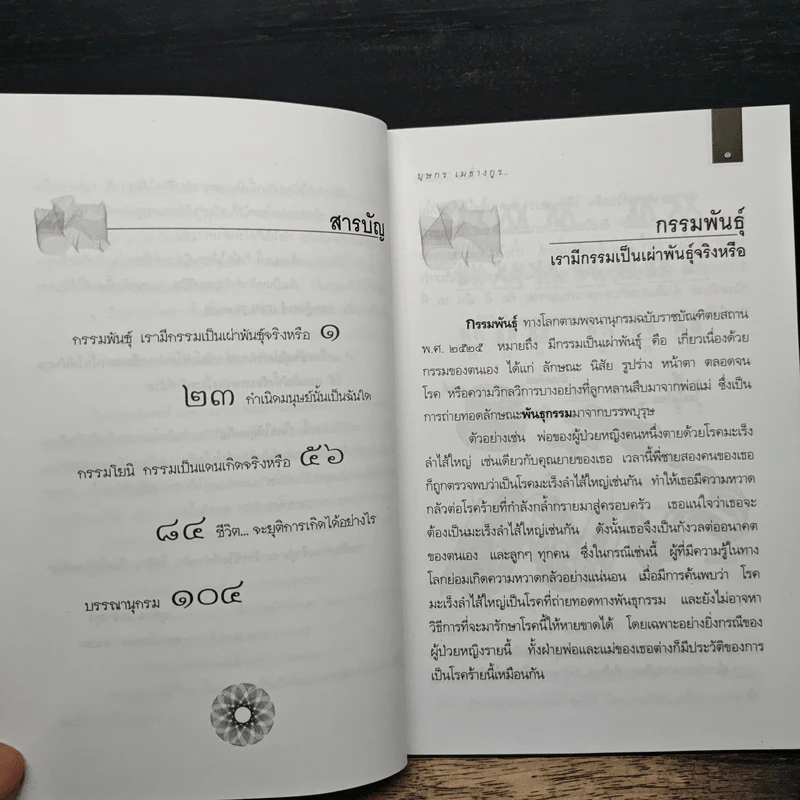 สารบัญ
กรรมพันธุ์ เรามีกรรมเป็นเผ่าพันธุ์จริงหรือ ๑
๒๓ กำเนิดมนุษย์นั้นเป็นฉันใด
กรรมโยนิ กรรมเป็นแดนเกิดจริงหรือ ๕๖
๘๔ ชีวิต... จะยุติการเกิดได้อย่างไร
บรรณานุกรม ๑๐๔
๑
บุษกร เมธางกูร...
กรรมพันธุ์
เรามีกรรมเป็นเผ่าพันธุ์จริงหรือ
กรรมพันธุ์ ทางโลกตามพจนานุกรมฉบับราชบัณฑิตยสถาน
พ.ศ. ๒๕๒๕ หมายถึง มีกรรมเป็นเผ่าพันธุ์ คือ เกี่ยวเนื่องด้วย
กรรมของตนเอง ได้แก่ ลักษณะ นิสัย รูปร่าง หน้าตา ตลอดจน
โรค หรือความวิกลวิการบางอย่างที่ลูกหลานสืบมาจากพ่อแม่ ซึ่งเป็น
การถ่ายทอดลักษณะพันธุกรรมมาจากบรรพบุรุษ
ตัวอย่างเช่น พ่อของผู้ป่วยหญิงคนหนึ่งตายด้วยโรคมะเร็ง
ลำไส้ใหญ่ เช่นเดียวกับคุณยายของเธอ เวลานี้พี่ชายสองคนของเธอ
ก็ถูกตรวจพบว่าเป็นโรคมะเร็งลำไส้ใหญ่เช่นกัน ทำให้เธอมีความหวาด
กลัวต่อโรคร้ายที่กำลังกล้ำกรายมาสู่ครอบครัว เธอแน่ใจว่าเธอจะ
ต้องเป็นมะเร็งลำไส้ใหญ่เช่นกัน ดังนั้นเธอจึงเป็นกังวลต่ออนาคต
ของตนเอง และลูกๆ ทุกคน ซึ่งในกรณีเช่นนี้ ผู้ที่มีความรู้ในทาง
โลกย่อมเกิดความหวาดกลัวอย่างแน่นอน เมื่อมีการค้นพบว่า โรค
มะเร็งลำไส้ใหญ่เป็นโรคที่ถ่ายทอดทางพันธุกรรม และยังไม่อาจหา
วิธีการที่จะมารักษาโรคนี้ให้หายขาดได้ โดยเฉพาะอย่างยิ่งกรณีของ
ผู้ป่วยหญิงรายนี้ ทั้งฝ่ายพ่อและแม่ของเธอต่างก็มีประวัติของการ
เป็นโรคร้ายนี้เหมือนกัน